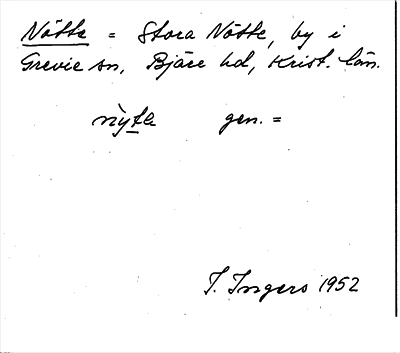 Nötte = Stora Nötte, by i
Grevie sn, Bjäre hd, Krist. län.
nỳte gen. =
I. Ingers 1952